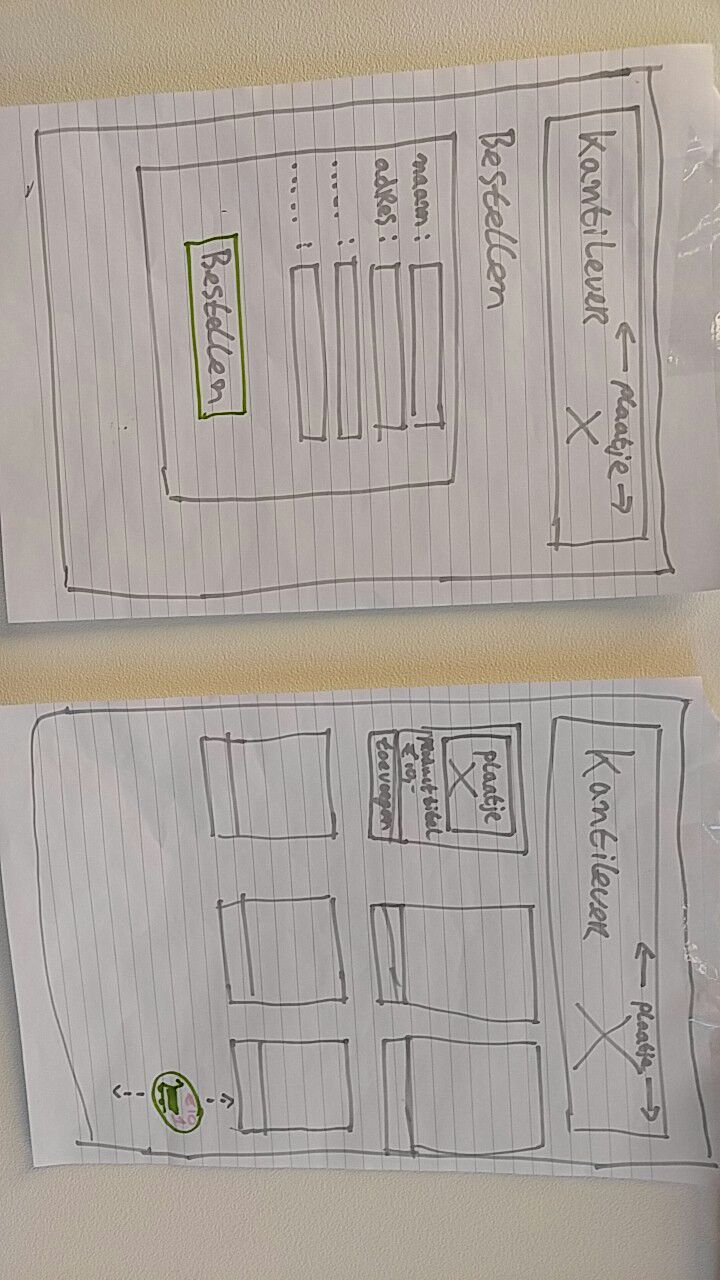 Kantilever
← plaatje →
Bestellen
naam :
adRes :
..... :
..... :
Bestellen
Kantilever
← plaatje →
plaatje
product titel
€10,-
toevoegen
€10